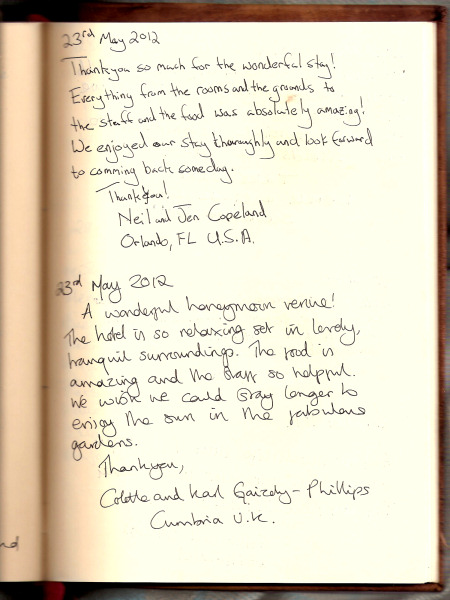 23rd May 2012
Thankyou so much for the wonderful stay!
Everything from the rooms and the grounds to
the staff and the food was absolutely amazing!
We enjoyed our stay thoroughly and look forward
to comming back someday.
Thankyou!
Neil and Jen Copeland
Orlando, FL U.S.A.
23rd May 2012
A wonderful honeymoon venue!
The hotel is so relaxing set in lovely,
tranquil surroundings. The food is
amazing and the staff so helpful.
We wish we could stay longer to
enjoy the sun in the fabulous
gardens.
Thankyou,
Colette and Karl Gaizely-Phillips
Cumbria U.K.